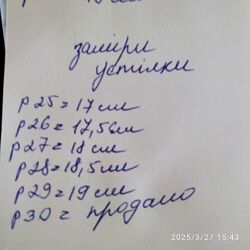 заміри
устілки
р25=17см
р26=17,5см
р27=18см
р28=18,5см
р29=19см
р30= продано
2025/3/27 15:43